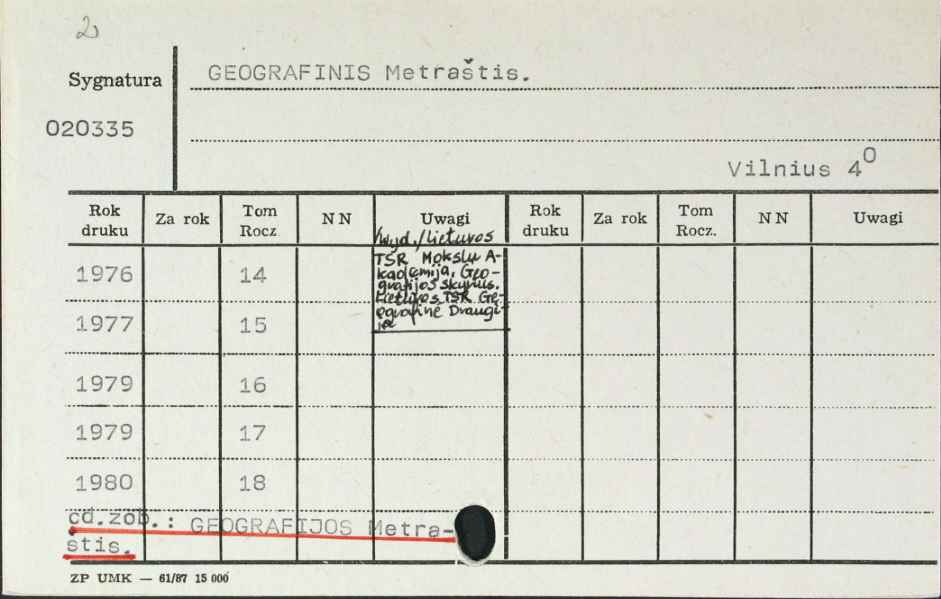 2
Sygnatura
GEOGRAFINIS Metraštis.
020335
Vilnius 4°
Rok druku Za rok Tom Rocz NN Uwagi Rok druku Za rok Tom Rocz. NN Uwagi
/Wyd./Lietuvos
TSR Mokslų A-
kademija, Geo-
grafijos skyrius.
Lietuvos TSR Ge-
ografinė Draugi-
ja
1976 14
1977 15
1979 16
1979 17
1980 18
cd.zob.: GEOGRAFIJOS Metra-
štis.
ZP UMK — 61/87 15 000